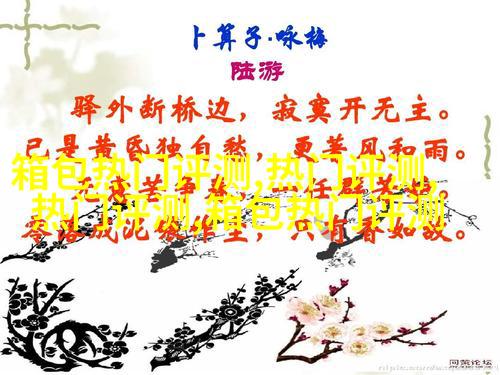 卜算子·咏梅
陆游
驿外断桥边，寂寞开无主。
已是黄昏独自愁，更著风和雨。
箱包热门评测,热门评测
无意苦争春，一任群芳妒。
热门评测,箱包热门评测
零落成泥碾作尘，只有香如故。
同黄论坛